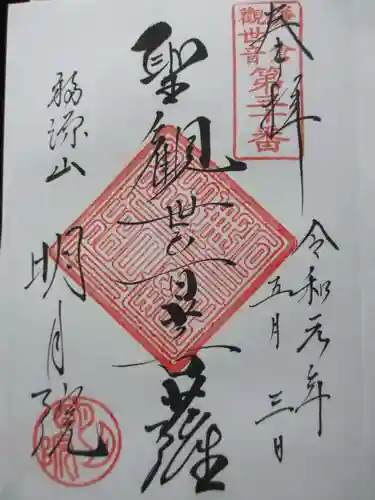 奉拝
観世音
第三十番
令和元年
五月三日
聖観世音菩薩
福源山
明月院